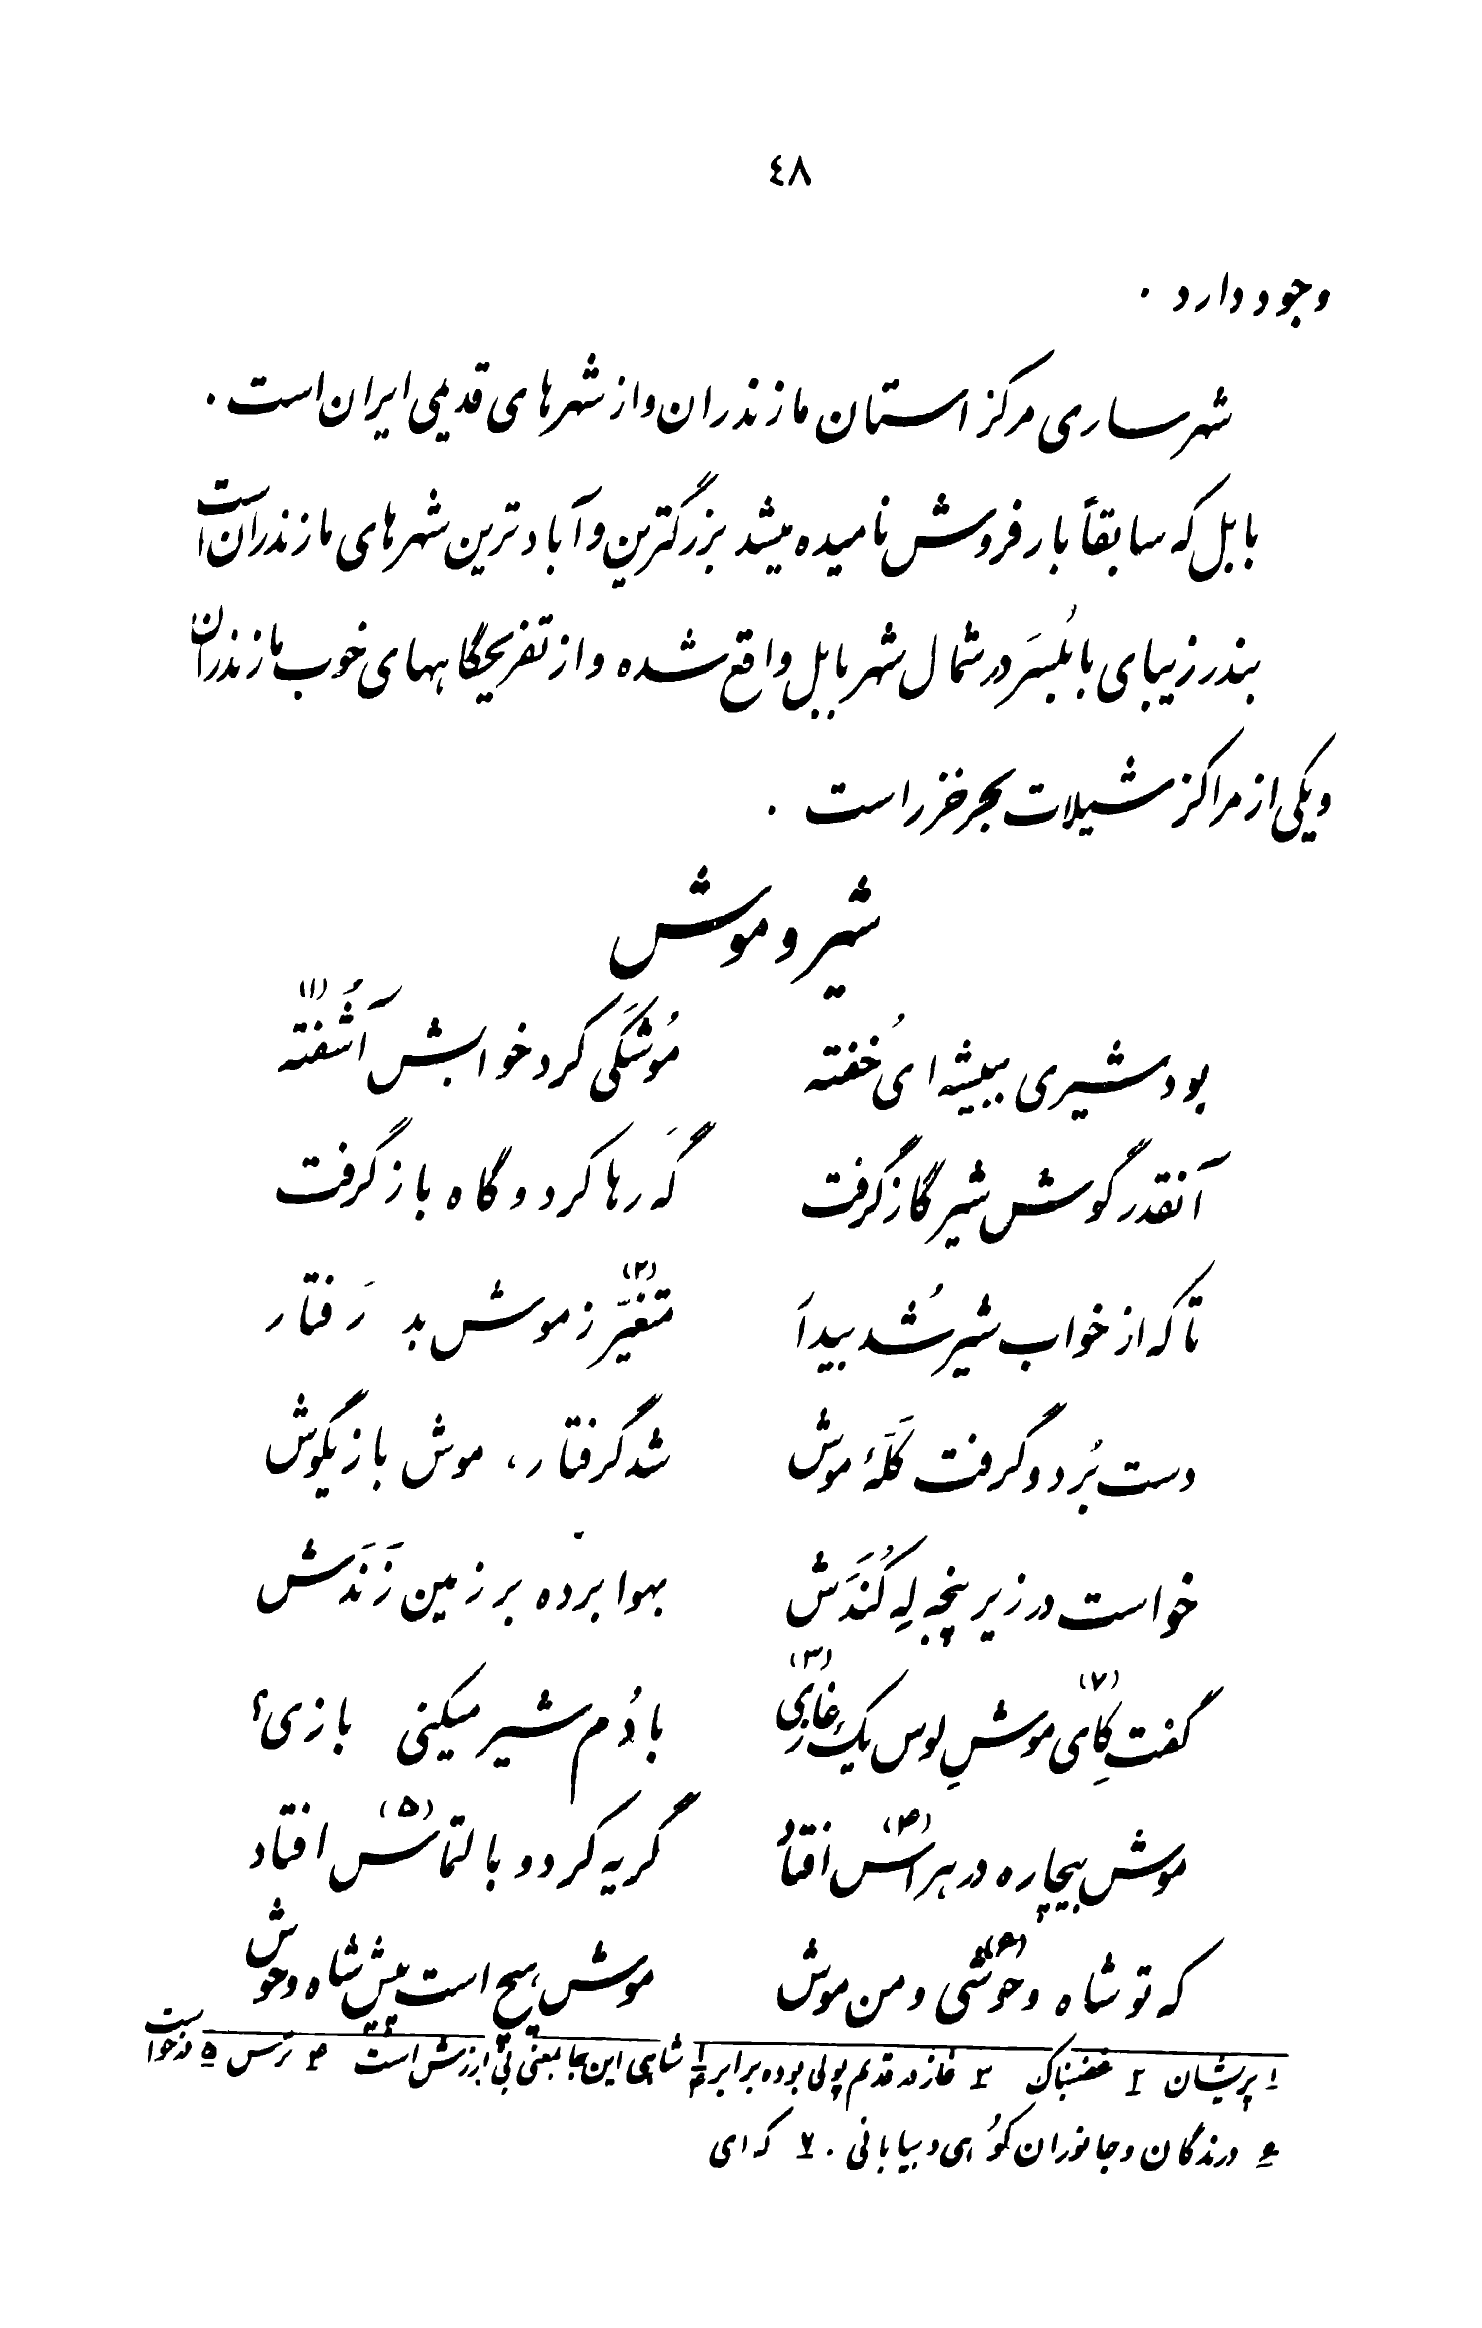 ٤٨
وجود دارد .
شهر ساری مرکز استان مازندران و از شهرهای قدیمی ایران است .
بابل که سابقاً بارفروش نامیده میشد بزرگترین و آبادترین شهرهای مازندران است
بندر زیبای بابُلسَر در شمال شهر بابل واقع شده و از تفریحگاههای خوب مازندران
و یکی از مراکز شیلات بحر خزر است .
شیر و موش
بود شیری ببیشه ای خُفته مُوشَکی کرد خوابش آشُفته (۱)
آنقدر گوش شیر گاز گرفت گَه رها کرد و گاه باز گرفت
تا که از خواب شیر شُد بیدار متغیّر (۲) ز موش بد رَفتار
دست بُرد و گرفت کَلّهٔ موش شد گرفتار، موش بازیگوش
خواست در زیر پنجه لِه کُنَدَش بهوا برده بر زمین زَنَدَش
گفت کِای (۷) موشِ لوس یکْ غازی (۳) با دُم شیر میکنی بازی؟
موش بیچاره در هراس (۴) افتاد گریه کرد و بالتماس (۵) افتاد
که تو شاه وحوشی (۶) و من موش موش هیچ است پیش شاه وحوش
۱ پریشان ۲ غضبناک ۳ غاز در قدیم پولی بوده برابر شاهی این جا بمعنی بی ارزش است ۴ ترس ۵ درخواست
۶ درندگان و جانوران کوُهی و بیابانی . ۷ که ای